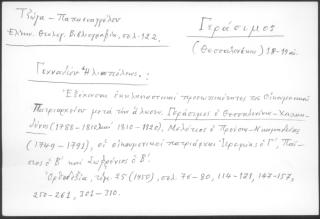 Τζώγα - Παπαευαγγέλου
Ἑλλην. Θεολογ. Βιβλιογραφία, σελ. 122.
Γεράσιμος
(Θεσσαλονίκης) 18-19 αἰ.
Γενναδίου Ἡλιουπόλεως :
Ἐξέχουσαι ἐκκλησιαστικαί προσωπικότητες τοῦ Οἰκουμενικοῦ
Πατριαρχείου μετά τήν ἅλωσιν. Γεράσιμος ὁ Θεσσαλονίκης-Χαλκη-
δόνος (1788-1810 καί 1810-1820), Μελέτιος ὁ Προύσης-Νικομηδείας
(1749-1792), οἱ οἰκουμενικοί πατριάρχαι Ἱερεμίας ὁ Γ΄, Παΐ-
σιος ὁ Β΄ καί Σωφρόνιος ὁ Β΄.
Ὀρθοδοξία, τόμ. 25 (1950), σελ. 76-80, 114-121, 147-157,
250-261, 301-310.